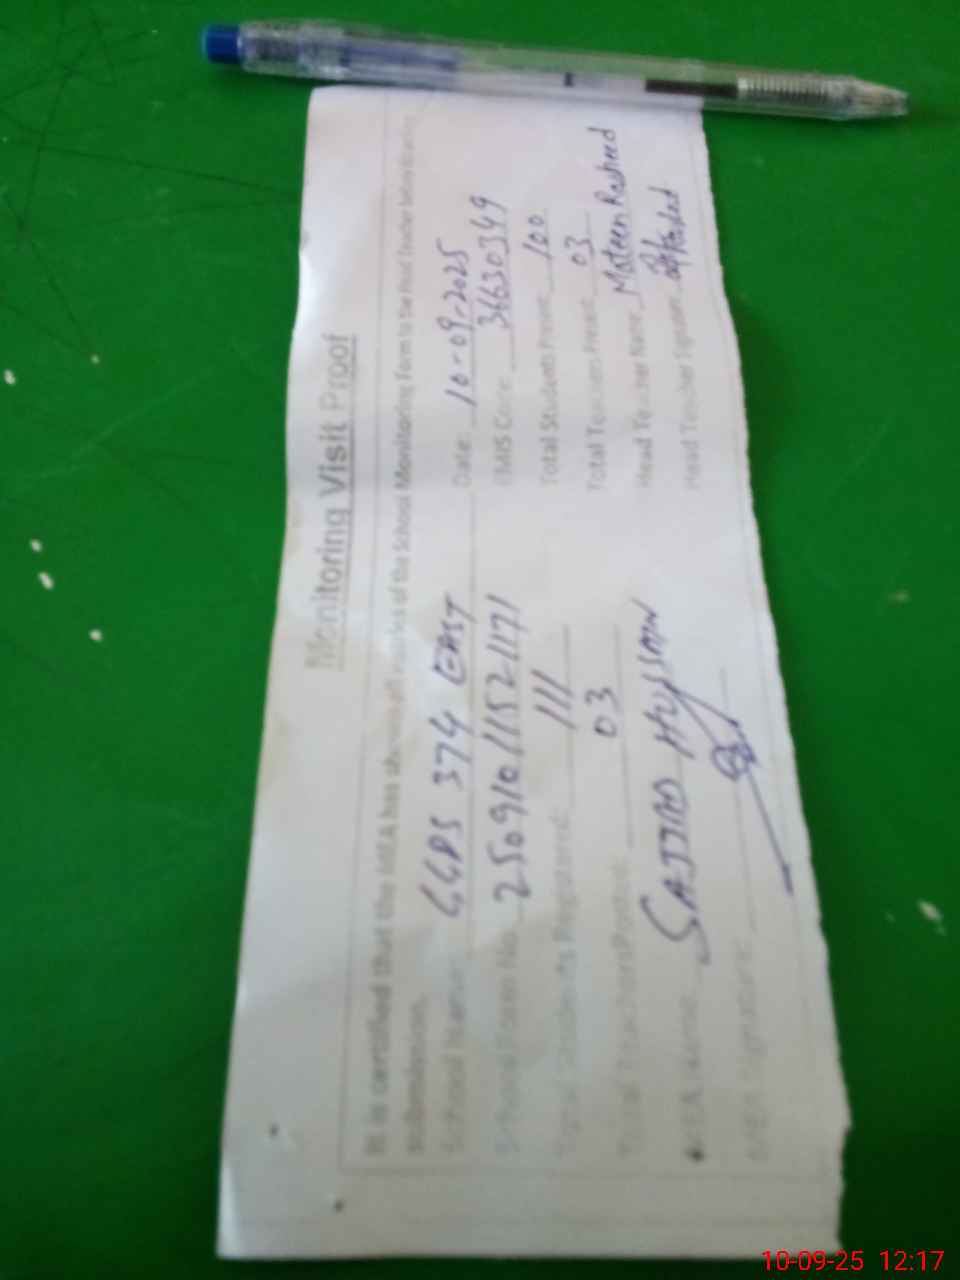 Monitoring Visit Proof
It is certified that the MEA has shown all entries of the School Monitoring Form to the Head Teacher before final
submission.
School Name: GGPS 374 EAST Date: 10-09-2025
School Form No. 2509101152171 EMIS Code: 36630349
Total Students Registered: 111 Total Students Present: 100
Total Teachers Posted: 03 Total Teachers Present: 03
MEA Name: SAJJAD HUSSAIN Head Teacher Name: Mateen Rasheed
MEA Signature: Head Teacher Signature:
10-09-25 12:17